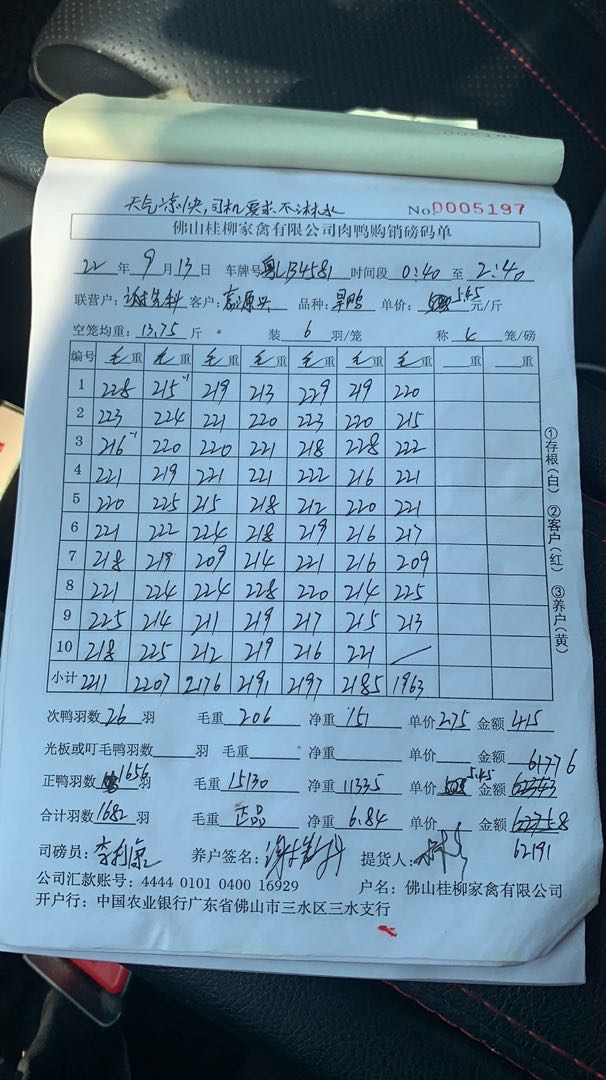 天气凉快,司机要求不淋水
No. 0005197
佛山桂柳家禽有限公司肉鸭购销磅码单
22 年 9 月 13 日 车牌号 粤L134581 时间段 0:40 至 2:40
联营户: 客户: 品种: 单价: 5.45 元/斤
空笼均重: 13.75 斤 装 6 羽/笼 称 4 笼/磅
编号 毛重 毛重 毛重 毛重 毛重 毛重 毛重 重 重
1 228 215-1 219 213 229 219 220
2 223 224 221 220 223 220 215
3 216-1 220 220 221 218 228 222
4 221 219 221 221 222 216 221
5 220 225 215 218 212 220 221
6 221 222 224 218 219 216 217
7 218 219 209 214 221 216 209
8 221 224 224 228 220 214 225
9 225 214 211 219 217 215 213
10 218 225 212 219 216 221 /
小计 2211 2207 2176 2191 2197 2185 1963
①存根(白) ②客户(红) ③养户(黄)
次鸭羽数 26 羽 毛重 206 净重 151 单价 2.75 金额 415
光板或叮毛鸭羽数 羽 毛重 净重 单价 金额
61776
正鸭羽数 1656 羽 毛重 15130 净重 11335 单价 5.45 金额 62343
合计羽数 1682 羽 毛重 正品 净重 6.84 单价 金额 62758
62191
司磅员: 养户签名: 提货人:
公司汇款账号: 4444 0101 0400 16929 户名: 佛山桂柳家禽有限公司
开户行: 中国农业银行广东省佛山市三水区三水支行